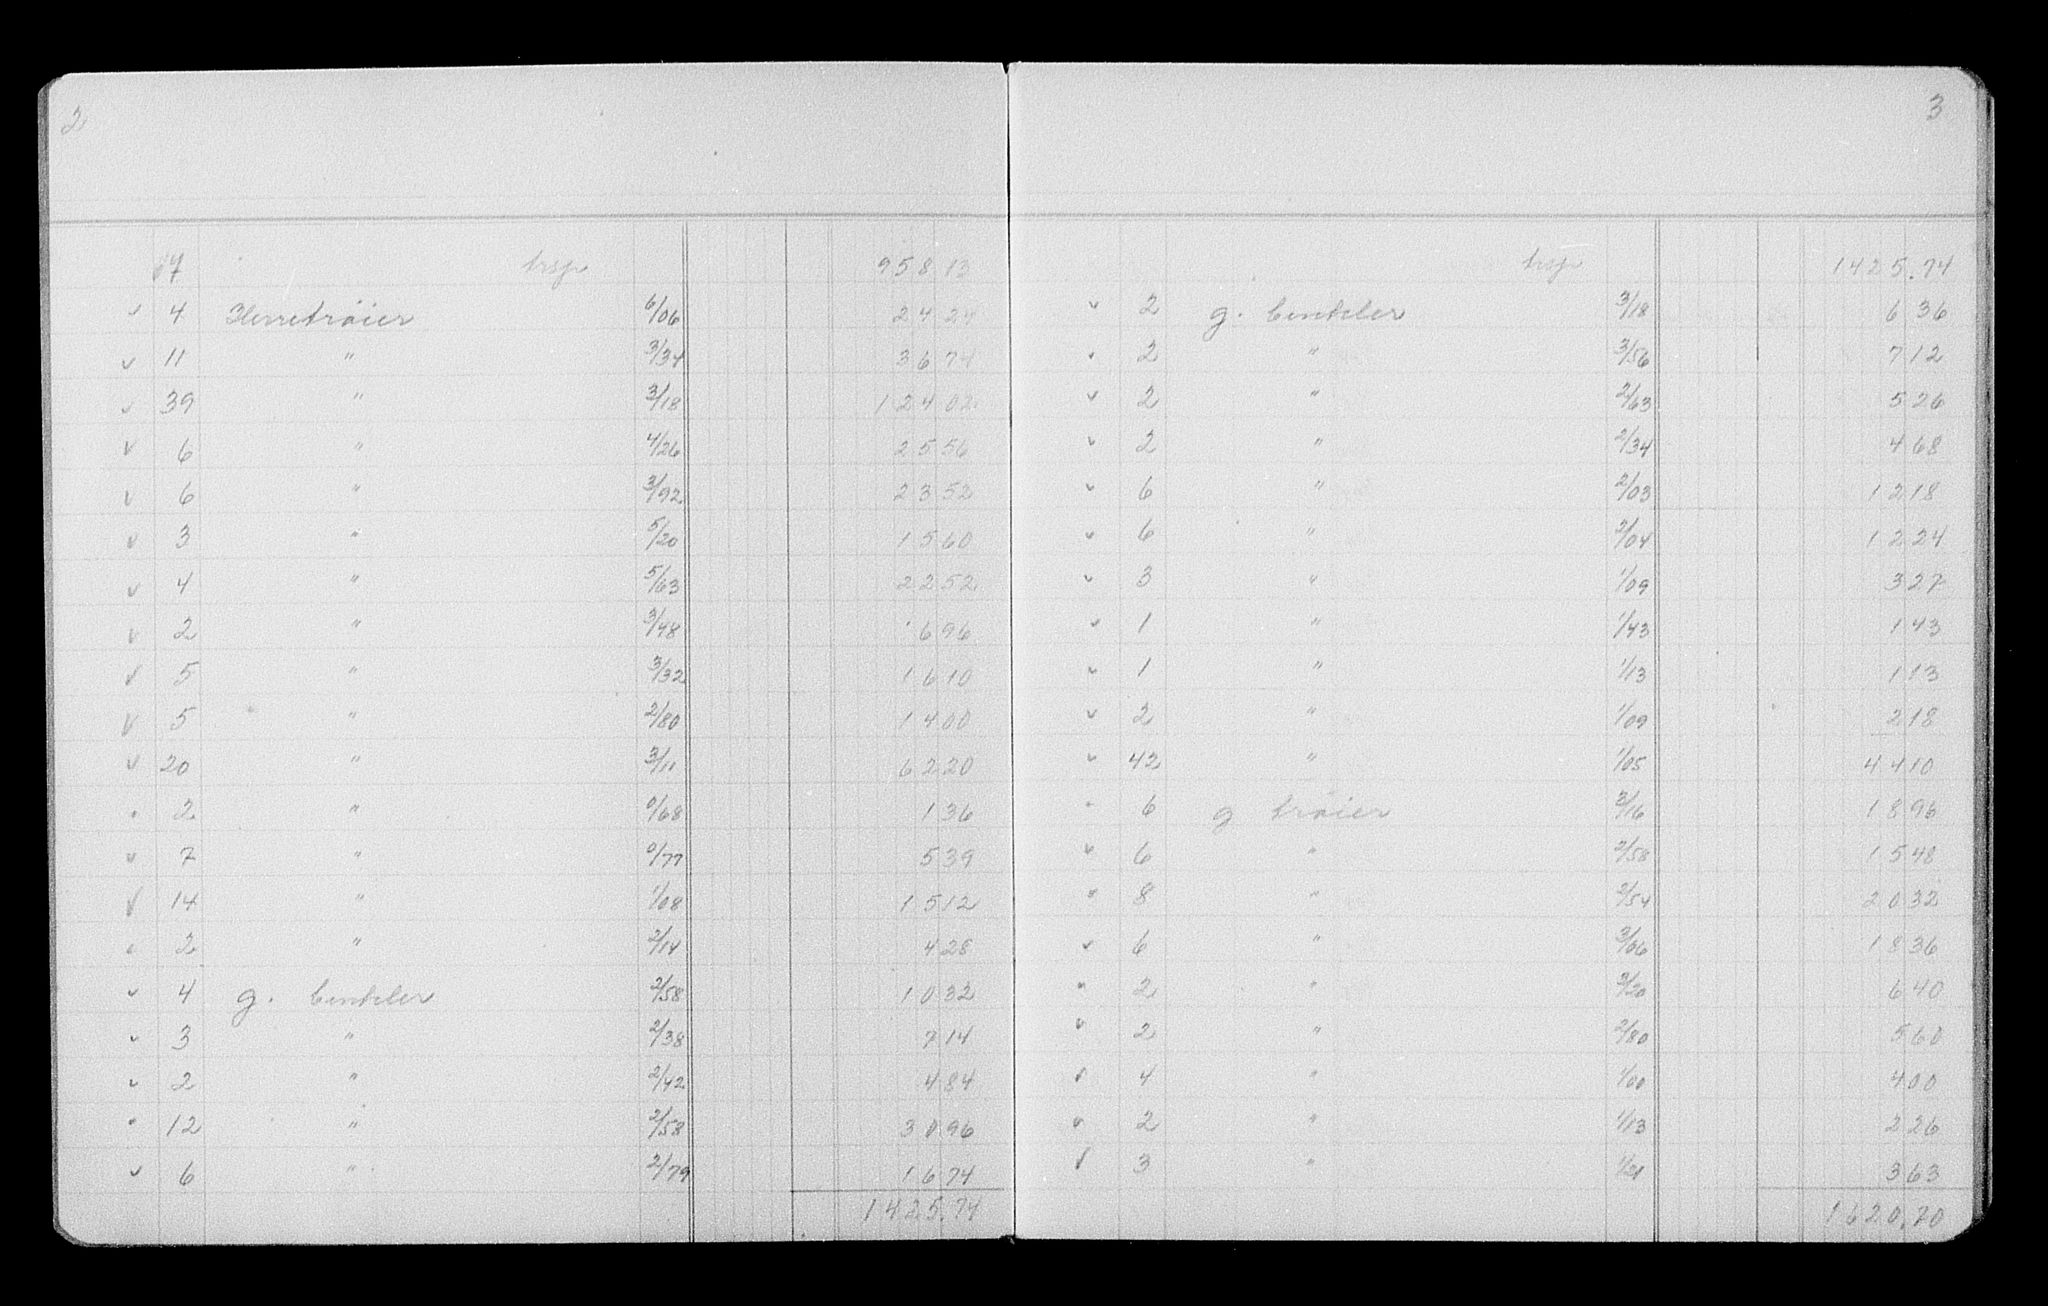 2
17 trsp 958 13
v 4 Herretrøier 6/06 24 24
v 11 " 3/34 36 74
v 39 " 3/18 124 02
v 6 " 4/26 25 56
v 6 " 3/92 23 52
v 3 " 5/20 15 60
v 4 " 5/63 22 52
v 2 " 3/48 6 96
v 5 " 3/32 16 10
v 5 " 2/80 14 00
v 20 " 3/11 62 20
2 " 0/68 1 36
v 7 " 0/77 5 39
v 14 " 1/08 15 12
2 " 2/14 4 28
v 4 g. 2/58 10 32
v 3 " 2/38 7 14
v 2 " 2/42 4 84
12 " 2/58 30 96
v 6 " 2/79 16 74
1425.74
3
trsp 1425.74
v 2 g. 3/18 6 36
2 " 3/56 7 12
v 2 " 2/63 5 26
v 2 " 2/34 4 68
v 6 " 2/03 12 18
v 6 " 2/04 12 24
v 3 " 1/09 3 27
v 1 " 1/43 1 43
v 1 " 1/13 1 13
v 2 " 1/09 2 18
v 42 " 1/05 44 10
6 g trøier 3/16 18 96
v 6 " 2/58 15 48
8 " 2/54 20 32
v 6 " 3/06 18 36
2 " 3/20 6 40
v 2 " 2/80 5 60
4 " 1/00 4 00
v 2 " 1/13 2 26
3 " 1/21 3 63
1620.70